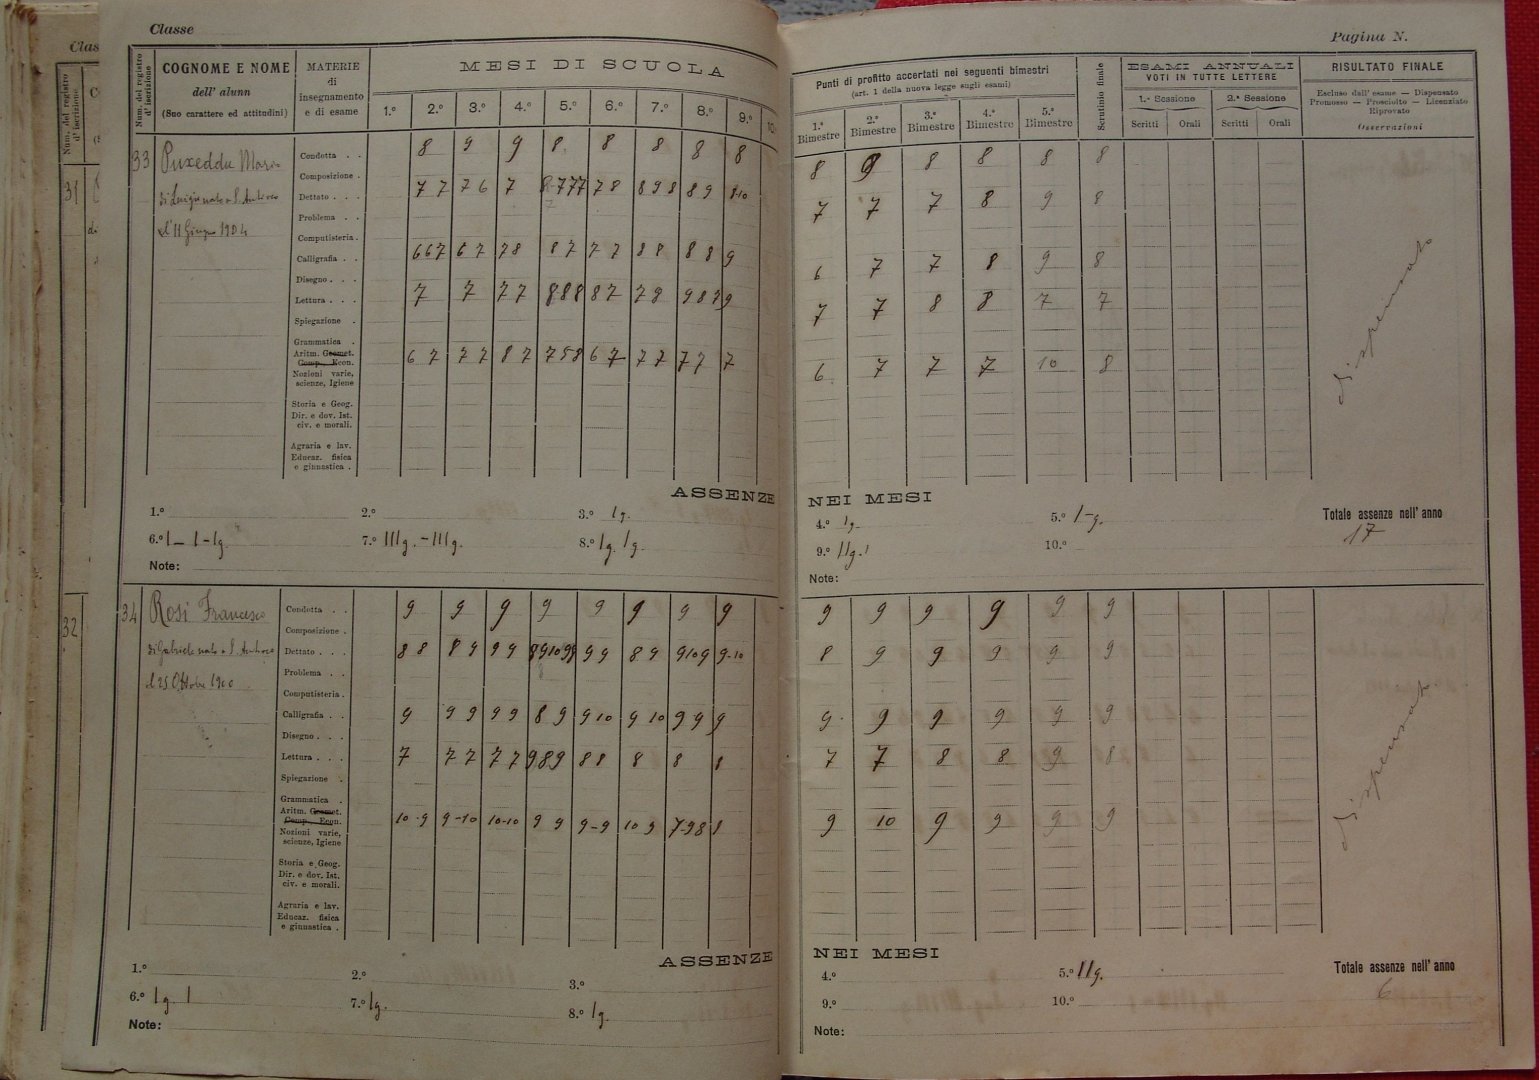 Classe
Pagina N.
Clas
Num. del registro d' iscrizione
COGNOME E NOME
dell' alunn
(Suo carattere ed attitudini)
MATERIE
di
insegnamento
e di esame
MESI DI SCUOLA
1.º 2.º 3.º 4.º 5.º 6.º 7.º 8.º 9.º 10.
Punti di profitto accertati nei seguenti bimestri
(art. 1 della nuova legge sugli esami)
1.º Bimestre 2.º Bimestre 3.º Bimestre 4.º Bimestre 5.º Bimestre
Scrutinio finale
ESAMI ANNUALI
VOTI IN TUTTE LETTERE
1.ª Sessione 2.ª Sessione
Scritti Orali Scritti Orali
RISULTATO FINALE
Escluso dall' esame — Dispensato
Promosso — Prosciolto — Licenziato
Riprovato
Osservazioni
31
32
33 Puxeddu Mari
di Luigi nato a S. Antioco
il 11 Giugno 1904
Condotta . . 8 9 9 8 8 8 8 8 8 9 8 8 8 8
Composizione .
Dettato . . . 7 7 7 6 7 7 8 8 9 8 8 9 8-10 7 7 7 8 9 8
Problema . .
Computisteria .
Calligrafia . . 6 6 7 6 7 7 8 8 7 7 7 8 8 8 8 9 6 7 7 8 9 8
Disegno . . .
Lettura . . . 7 7 7 7 8 8 8 8 7 7 9 9 8 7 9 7 7 8 8 7 7
Spiegazione .
Grammatica .
Aritm. Geomet.
Comp., Econ. 6 7 7 7 8 7 7 5 8 6 7 7 7 7 7 7 6 7 7 7 10 8
Nozioni varie,
scienze, Igiene
Storia e Geog.
Dir. e dov. Ist.
civ. e morali.
Agraria e lav.
Educaz. fisica
e ginnastica .
dispensato
ASSENZE NEI MESI
1.º 2.º 3.º 1g. 4.º 1g. 5.º 1-g.
Totale assenze nell' anno
17
6.º 1 – 1 – 1g. 7.º 111g. – 111g. 8.º 1g. 1g. 9.º 11g. 1 10.º
Note: Note:
34 Rosi Francesco
di Gabriele nato a S. Antioco
il 25 Ottobre 1900
Condotta . . 9 9 9 9 9 9 9 9 9 9 9 9 9 9
Composizione .
Dettato . . . 8 8 8 9 9 9 8 9 10 9 9 9 9 8 9 9 10 9 9-10 8 9 9 9 9 9
Problema . .
Computisteria .
Calligrafia . . 9 9 9 9 9 8 9 9 10 9 10 9 9 9 9 9 9 9 9 9
Disegno . . .
Lettura . . . 7 7 7 7 7 9 8 9 8 8 8 8 8 7 7 8 8 9 8
Spiegazione .
Grammatica .
Aritm. Geomet.
Comp., Econ. 10-9 9-10 10-10 9 9 9-9 10 9 7-9 8 8 9 10 9 9 9 9
Nozioni varie,
scienze, Igiene
Storia e Geog.
Dir. e dov. Ist.
civ. e morali.
Agraria e lav.
Educaz. fisica
e ginnastica .
dispensato
ASSENZE NEI MESI
1.º 2.º 3.º 4.º 5.º 11g.
Totale assenze nell' anno
6
6.º 1g. 1 7.º 1g. 8.º 1g. 9.º 10.º
Note: Note: